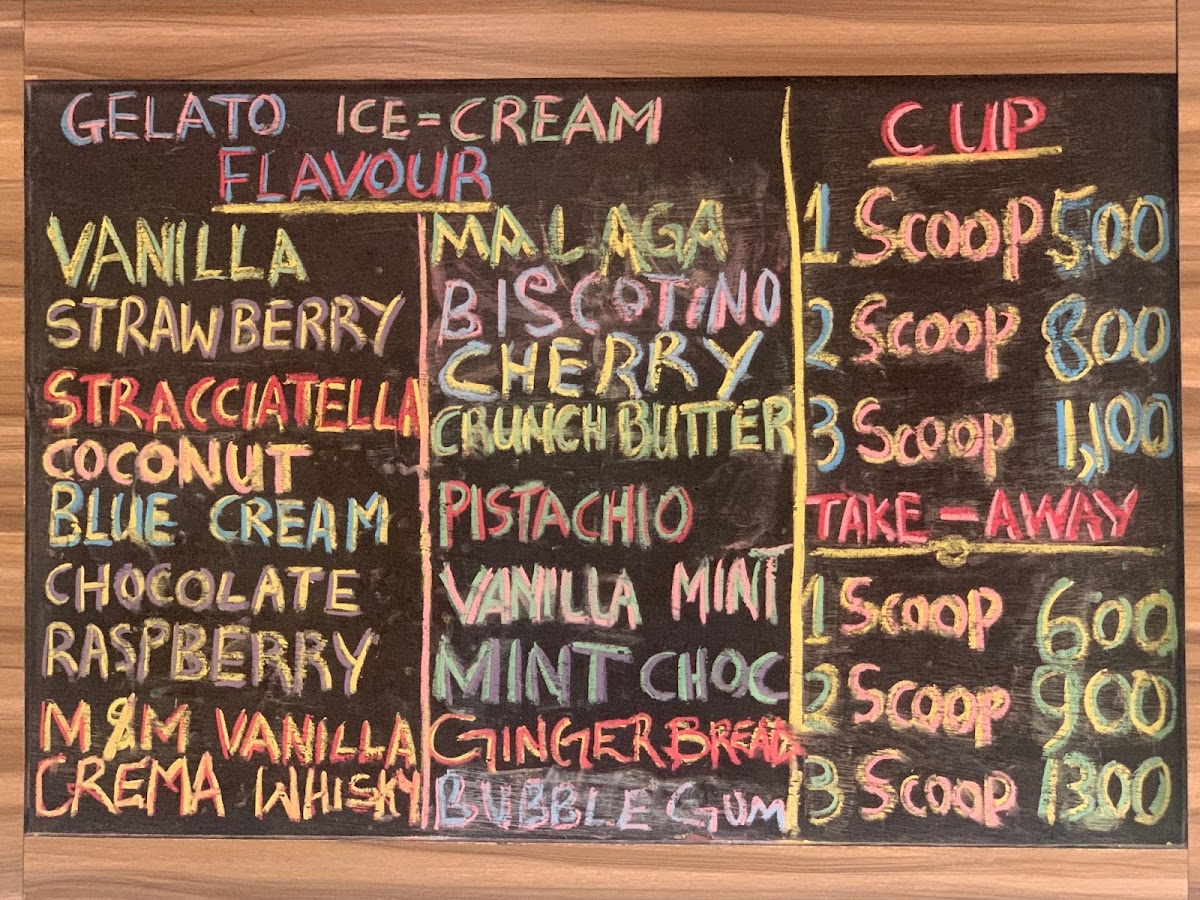 GELATO ICE-CREAM
FLAVOUR
VANILLA
STRAWBERRY
STRACCIATELLA
COCONUT
BLUE CREAM
CHOCOLATE
RASPBERRY
M&M VANILLA
CREMA WHISKY
MALAGA
BISCOTINO
CHERRY
CRUNCH BUTTER
PISTACHIO
VANILLA MINT
MINT CHOC
GINGERBREAD
BUBBLE GUM
CUP
1 Scoop 500
2 Scoop 800
3 Scoop 1,100
TAKE-AWAY
1 Scoop 600
2 Scoop 900
3 Scoop 1300